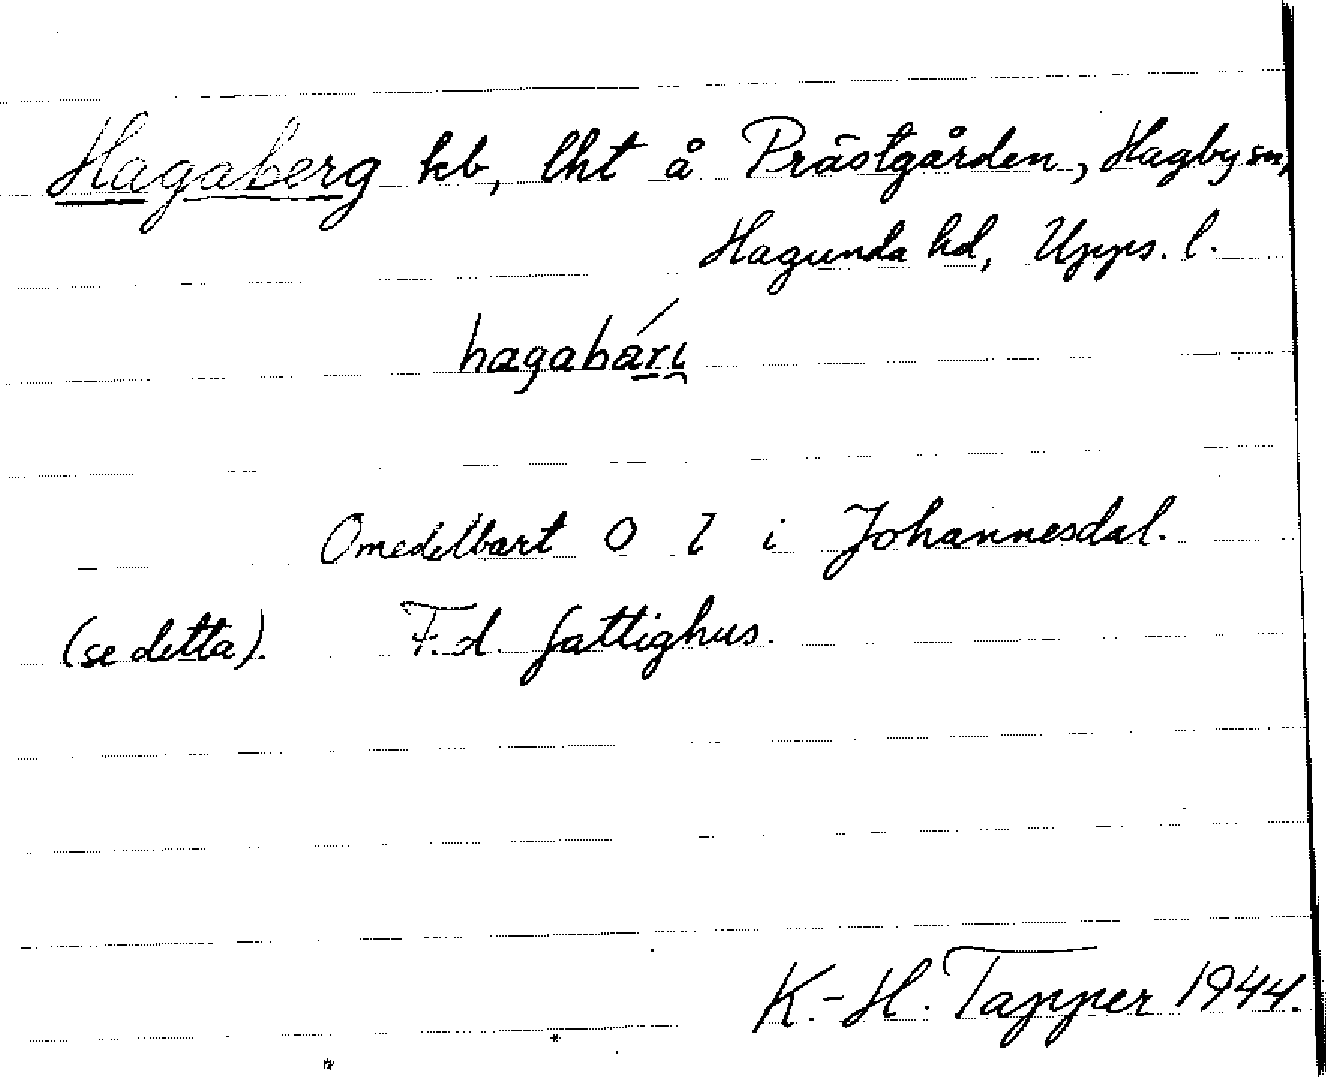 Hagaberg kb, lht å Prästgården, Hagby sn,
Hagunda hd, Upps. l.
Omedelbart O l i Johannesdal.
(se detta). F.d. fattighus.
K.-H. Tapper 1944.